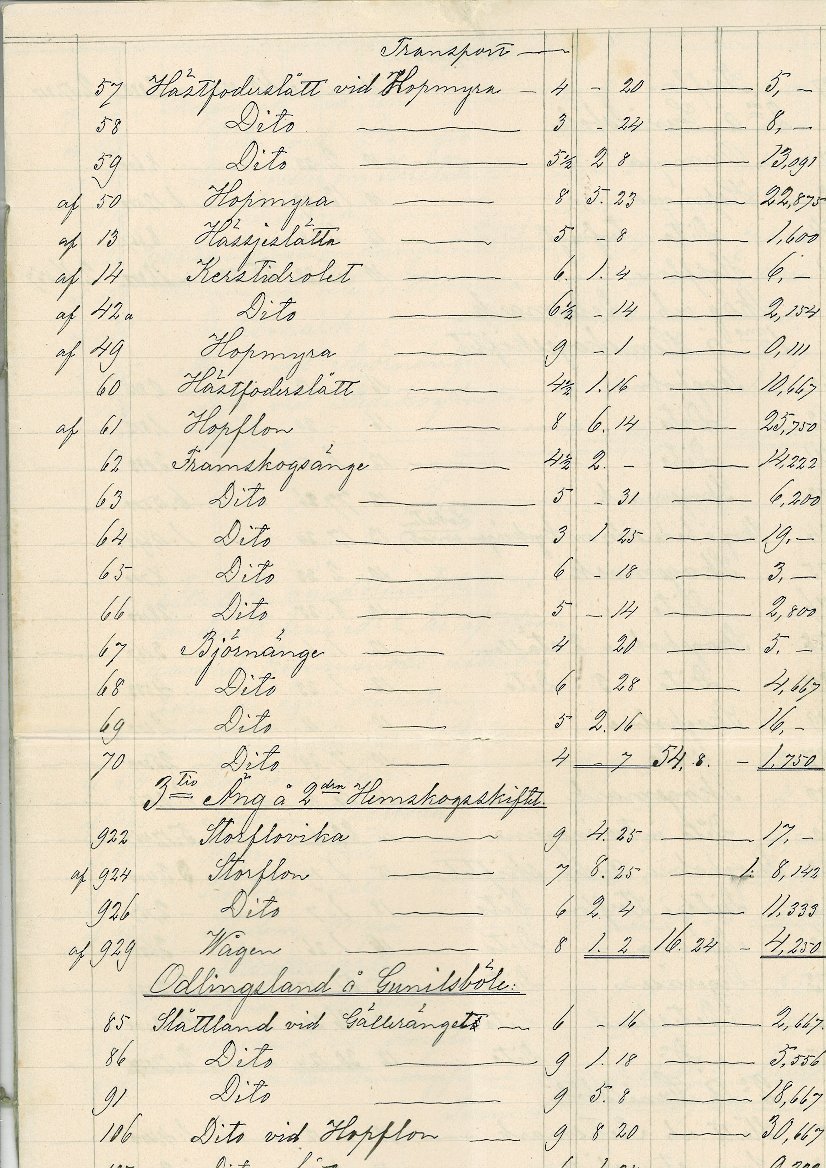 Transport —
57 Hästfoderslått vid Hopmyra — 4 - 20 — 5, -
58 Dito — 3 - 24 — 8, -
59 Dito — 5½ 2 8 — 13,091
af 50 Hopmyra — 8 5. 23 — 22,875
af 13 Hässjeslätta — 5 - 8 — 1,600
af 14 Kerstidrolet — 6. 1. 4 — 6, -
af 42a Dito — 6½ - 14 — 2,154
af 49 Hopmyra — 9 - 1 — 0,111
60 Hästfoderslått — 4½ 1. 16 — 10,667
af 61 Hopflon — 8 6. 14 — 25,750
62 Framskogsänge — 4½ 2. - — 14,222
63 Dito — 5 - 31 — 6,200
64 Dito — 3 1 25 — 19. -
65 Dito — 6 - 18 — 3, -
66 Dito — 5 - 14 — 2,800
67 Björnänge — 4 20 — 5. -
68 Dito — 6 28 — 4,667
69 Dito — 5 2. 16 — 16, -
70 Dito — 4 - 7 54. 8. - 1,750
3tio Äng å 2dra Hemskogsskiftet.
922 Storflovika — 9 4. 25 — 17, -
af 924 Storflon — 7 8. 25 — 1. 8,142
926 Dito — 6 2 4 — 11,333
af 929 Wågen — 8 1. 2 16. 24 - 4,250
Odlingsland å Gunilsböle:
85 Slåttland vid Gälleränget — 6 - 16 — 2,667.
86 Dito — 9 1. 18 — 5,556
91 Dito — 9 5. 8 — 18,667
106 Dito vid Hopflon — 9 8 20 — 30,667